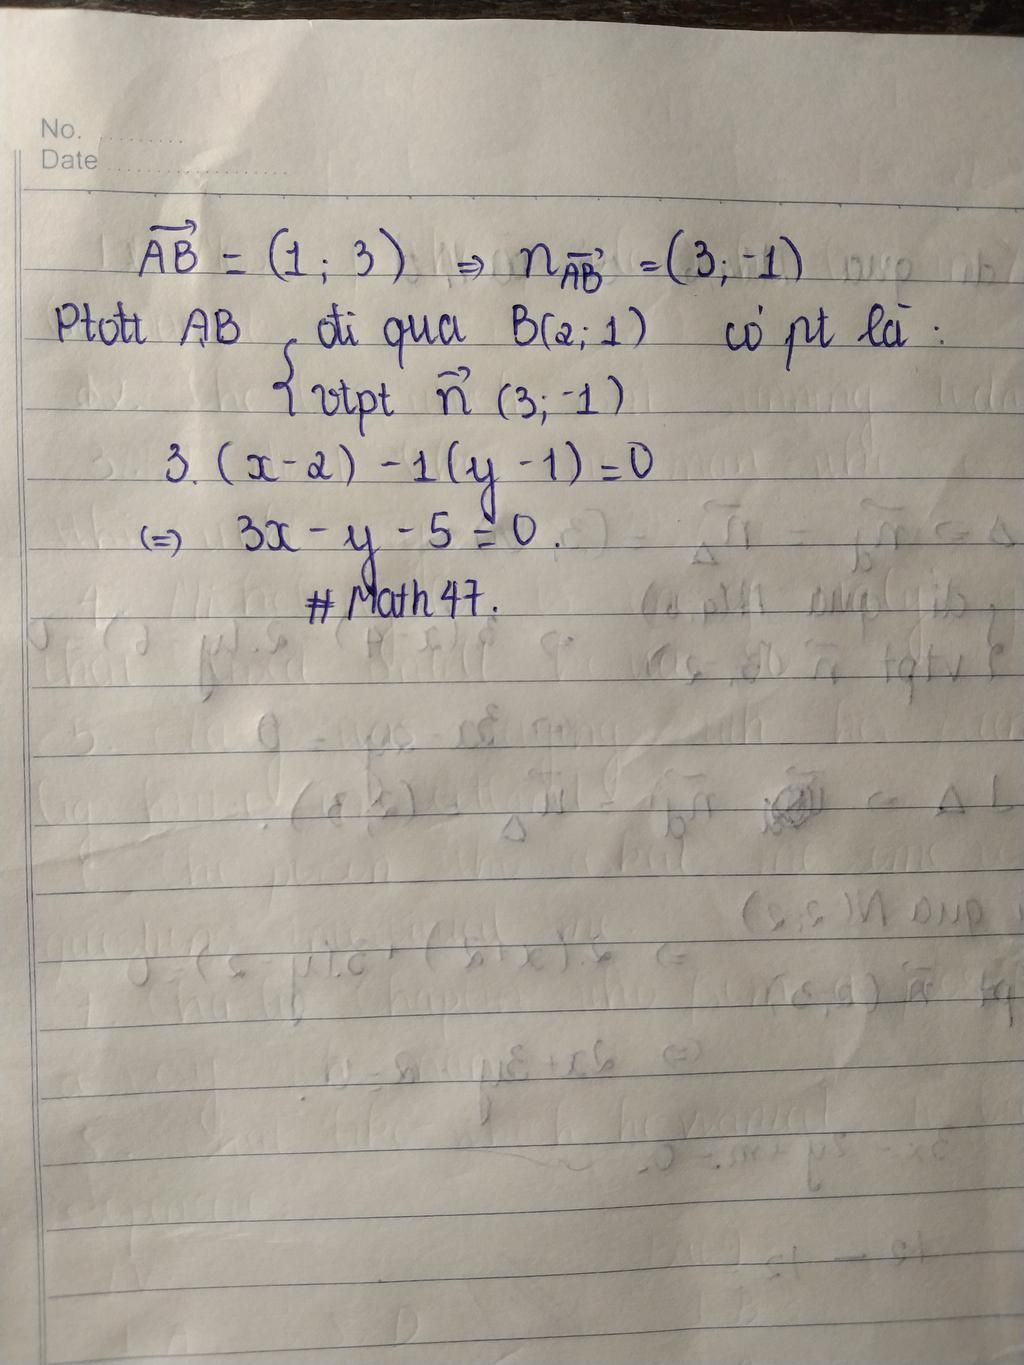 No. ..........
Date ....................
$\overrightarrow{AB}$ = (1 ; 3) ⇒ n$_{\overrightarrow{AB}}$ = (3; -1)
Ptđtt AB { đi qua B(2; 1) có pt là :
vtpt $\vec{n}$ (3; -1)
3. (x - 2) - 1(y - 1) = 0
(=) 3x - y - 5 = 0.
# Math 47.